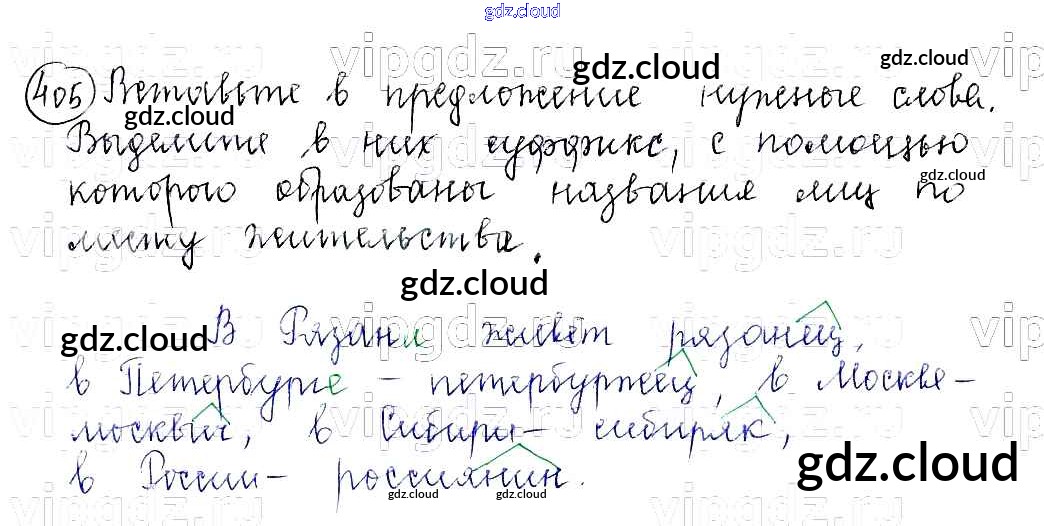 gdz.cloud
405 Вставьте в предложение нужные слова.
Выделите в них суффикс, с помощью
которого образованы названия лиц по
месту жительства.
В Рязани живёт рязанец,
в Петербурге - петербуржец, в Москве -
москвич, в Сибири - сибиряк,
в России - россиянин.
gdz.cloud
gdz.cloud
gdz.cloud
gdz.cloud
gdz.cloud
gdz.cloud
gdz.cloud
gdz.cloud
gdz.cloud
vipgdz.ru